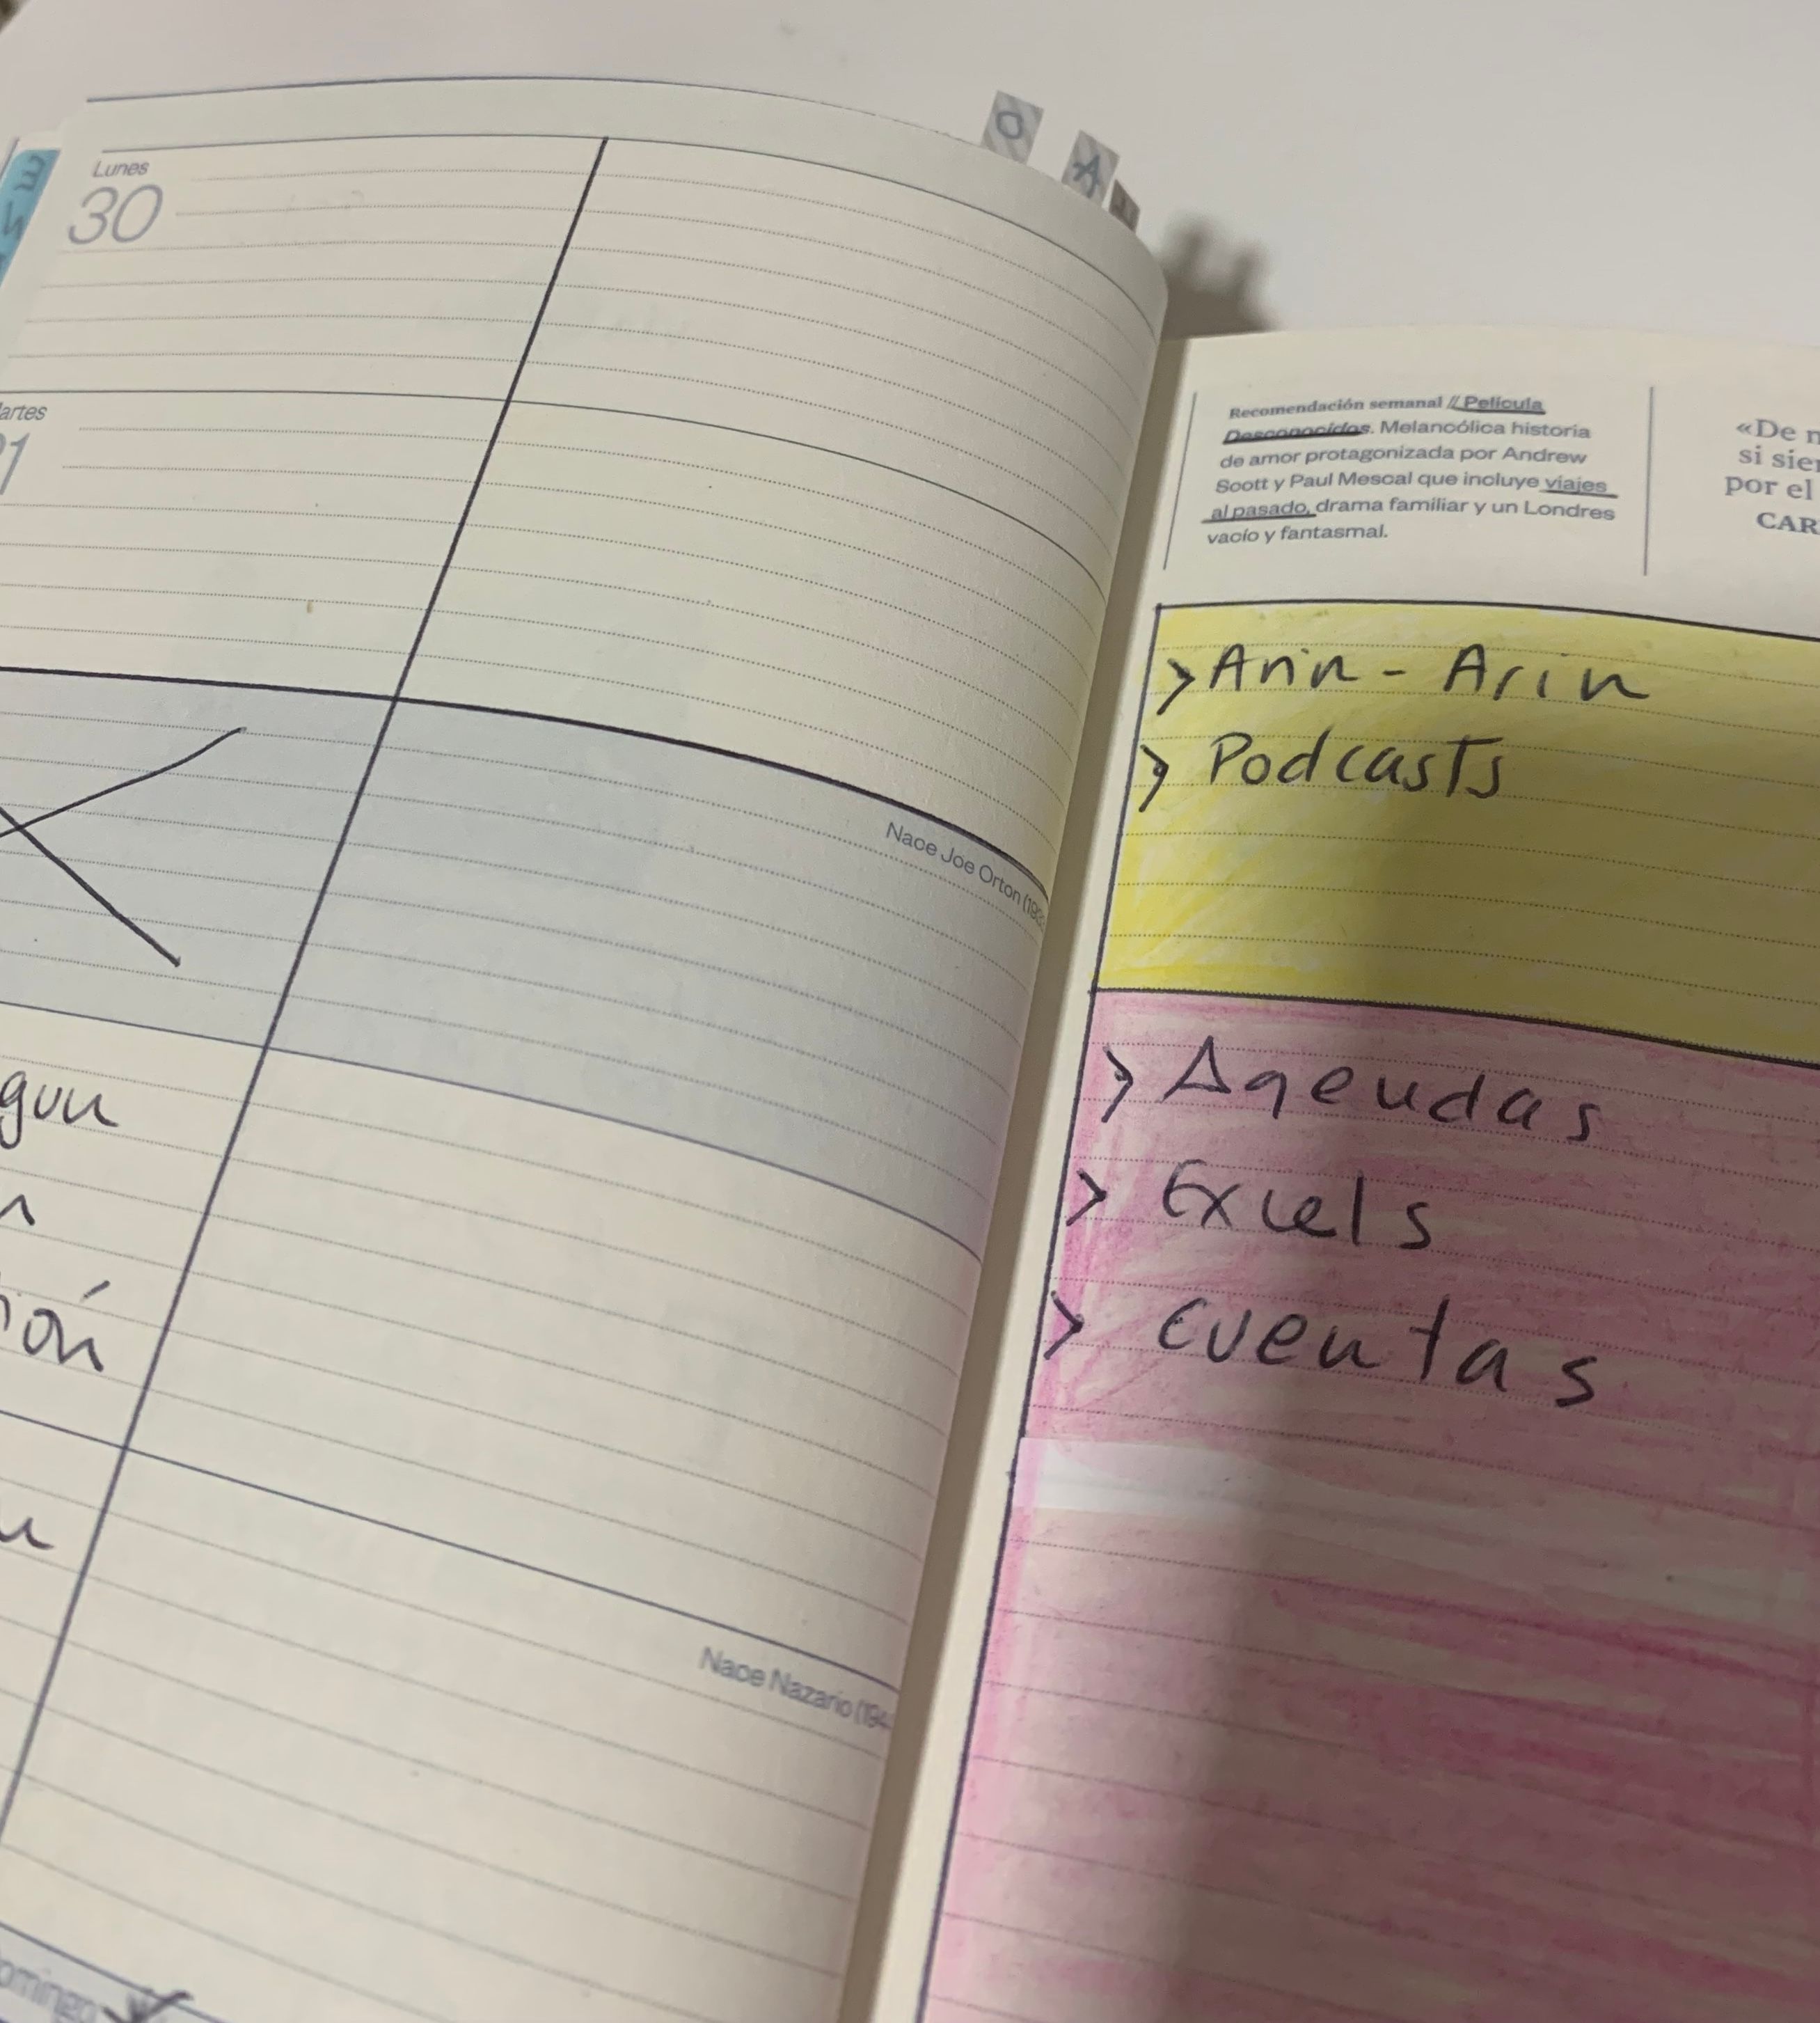 Lunes
30
Nace Joe Orton (193
gun
ión
Nace Nazario (194
O
A
Recomendación semanal // Película
Desconocidos. Melancólica historia
de amor protagonizada por Andrew
Scott y Paul Mescal que incluye viajes
al pasado, drama familiar y un Londres
vacío y fantasmal.
«De
por el
CAR
> Arin - Arin
> Podcasts
> Agendas
> Excels
> Cuentas